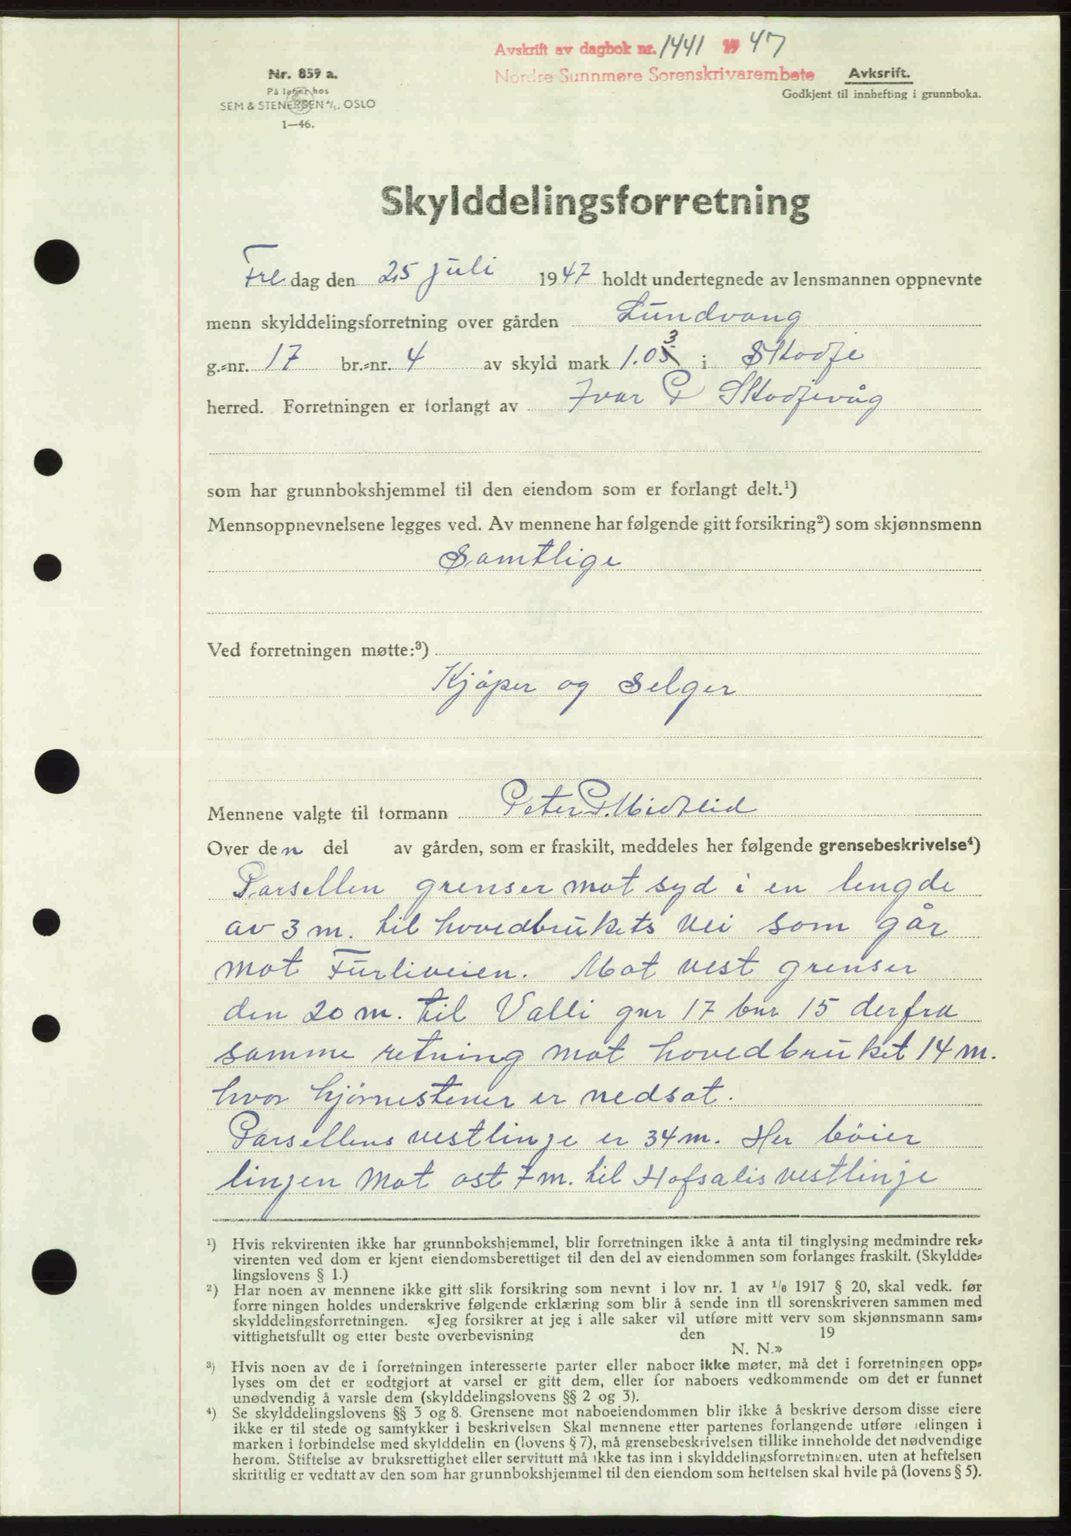 Avskrift av dagbok nr. 1441 1947
Nordre Sunnmøre Sorenskrivarembete
Avksrift.
Godkjent til innhefting i grunnboka.
Nr. 859 a.
På lager hos
SEM & STENERSEN A/S. OSLO
1—46.
Skylddelingsforretning
Fre dag den 25 juli 1947 holdt undertegnede av lensmannen oppnevnte
menn skylddelingsforretning over gården Lundvang
g.-nr. 17 br.-nr. 4 av skyld mark 1.03 i Skodje
herred. Forretningen er forlangt av Ivar P Skodjevåg
som har grunnbokshjemmel til den eiendom som er forlangt delt.¹)
Mennsoppnevnelsene legges ved. Av mennene har følgende gitt forsikring²) som skjønnsmenn
Samtlige
Ved forretningen møtte:³)
Kjøper og Selger
Mennene valgte til formann Peter P. Midtlid
Over den del av gården, som er fraskilt, meddeles her følgende grensebeskrivelse⁴)
Parsellen grenser mot syd i en lengde
av 3 m. til hovedbrukets vei som går
mot Furliveien. Mot vest grenser
den 20 m. til Valli gnr 17 bnr 15 derfra
samme retning mot hovedbruket 14 m.
hvor hjørnestener er nedsat.
Parsellens vestlinje er 34 m. Her bøier
linjen mot ost 7 m. til Hofsalis vestlinje
¹) Hvis rekvirenten ikke har grunnbokshjemmel, blir forretningen ikke å anta til tinglysing medmindre rek-
virenten ved dom er kjent eiendomsberettiget til den del av eiendommen som forlanges fraskilt. (Skyldde-
lingslovens § 1.)
²) Har noen av mennene ikke gitt slik forsikring som nevnt i lov nr. 1 av 1/6 1917 § 20, skal vedk. før
forre ningen holdes underskrive følgende erklæring som blir å sende inn til sorenskriveren sammen med
skylddelingsforretningen. «Jeg forsikrer at jeg i alle saker vil utføre mitt verv som skjønnsmann sam-
vittighetsfullt og etter beste overbevisning den 19
N. N.»
³) Hvis noen av de i forretningen interesserte parter eller naboer ikke møter, må det i forretningen opp-
lyses om det er godtgjort at varsel er gitt dem, eller for naboers vedkommende om det er funnet
unødvendig å varsle dem (skylddelingslovens §§ 2 og 3).
⁴) Se skylddelingslovens §§ 3 og 8. Grensene mot naboeiendommen blir ikke å beskrive dersom disse eiere
ikke er til stede og samtykker i beskrivelsen Skal mennene etter partenes forlangende utføre delingen i
marken i forbindelse med skylddelin en (lovens § 7), må grensebeskrivelsen tillike inneholde det nødvendige
herom. Stiftelse av bruksrettighet eller servitutt må ikke tas inn i skylddelingsforretningen, uten at heftelsen
skriftlig er vedtatt av den som har grunnbokshjemmel til den eiendom som heftelsen skal hvile på (lovens § 5).